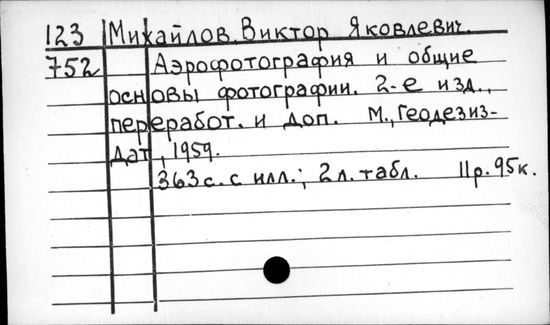 123 Михайлов, Виктор Яковлевич.
752 Аэрофотография и общие
основы фотографии. 2-е изд.,
переработ. и доп. М., Геодезиз-
дат, 1959.
363 с. с илл.; 2 л. табл. 11р. 95к.